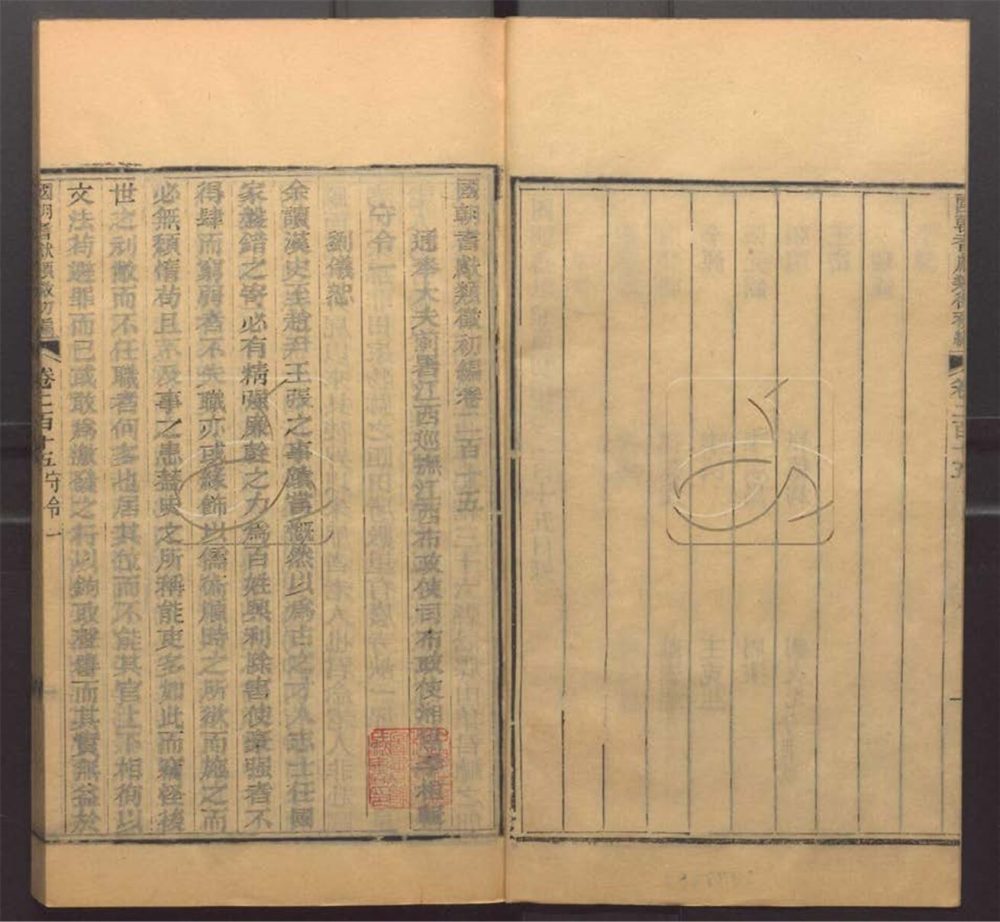 國朝耆獻類徵初編卷二百十五
通奉大夫前署江西巡撫江西布政使司布政使湘陰李桓輯
守令一
劉儀恕
余讀漢史至趙尹王張之事隲嘗慨然以為古之才人志士在國
家盤錯之寄必有精強廉幹之力為百姓興利除害使豪强者不
得肆而窮弱者不失職亦或緣飾以儒術順時之所欲而施之而
必無頹惰苟且不及事之患蓋史之所稱能吏多如此而竊怪後
世之利敝而不任職者何多也居其位而不能其官上下相徇以
文法苟避罪而已或敢為激發之行以鉤取聲譽而其實無益於
國朝耆獻類徵初編 卷二百十五守令一